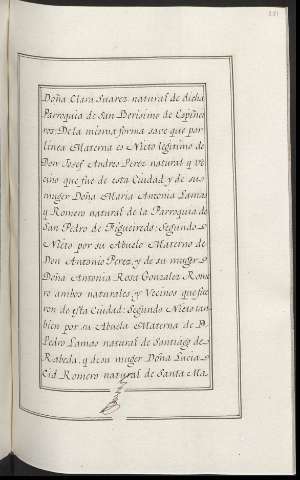 Doña Clara Suarez natural de dicha
Parroquia de San Verisimo de Espiñei
ros: De la misma forma save que por
linea Materna es Nieto legitimo de
Don Josef Andres Perez natural y Ve
cino que fue de esta Ciudad y de su
muger Doña Maria Antonia Lamas
y Romero natural de la Parroquia de
San Pedro de Figueiredo: Segundo
Nieto por su Abuelo Materno de
Don Antonio Perez, y de su muger
Doña Antonia Rosa Gonzalez Rome
ro ambos naturales, y Vecinos que fue
ron de esta Ciudad: Segundo Nieto tam
bien por su Abuela Materna de Dn
Pedro Lamas natural de Santiago de
Rabeda, y de su muger Doña Lucia
Cid Romero natural de Santa Ma